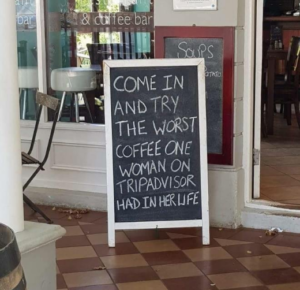 bar
& coffee bar
SOUPS
COME IN
AND TRY
THE WORST
COFFEE ONE
WOMAN ON
TRIPADVISOR
HAD IN HER LIFE